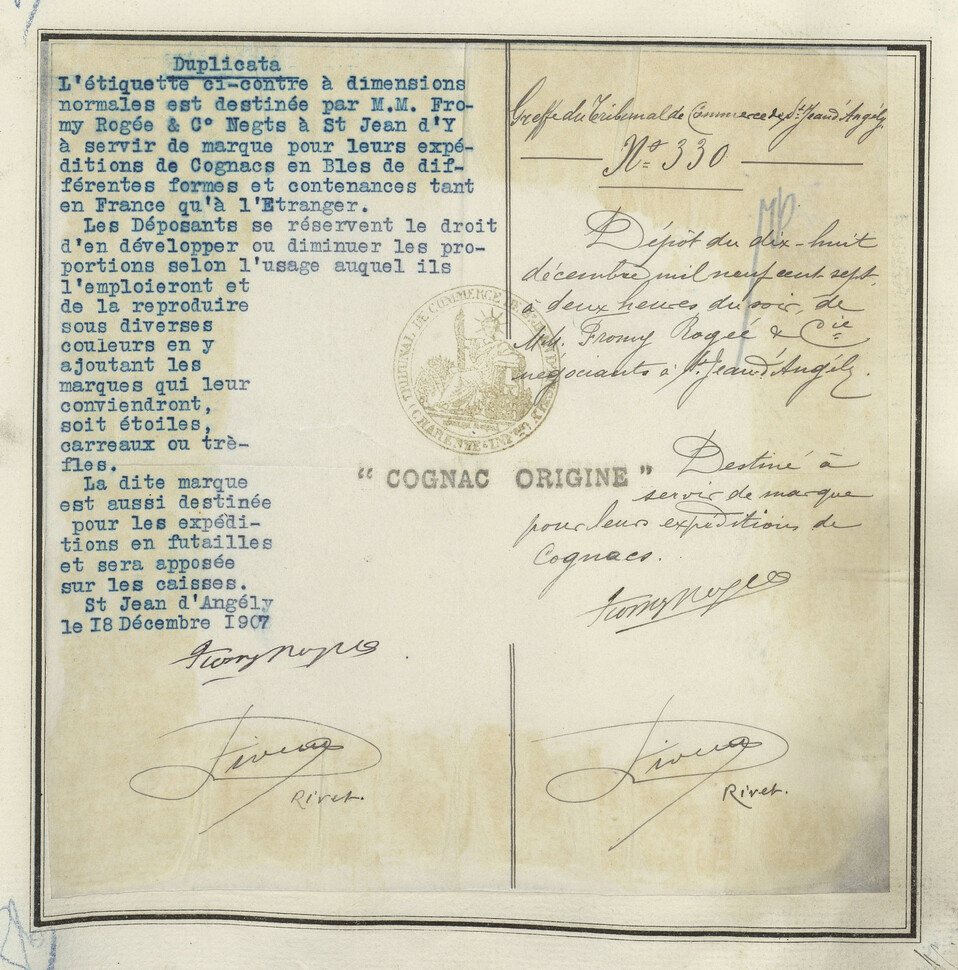 Duplicata
L'étiquette ci-contre à dimensions
normales est destinée par M.M. Fro-
my Rogée & C° Negts à St Jean d'Y
à servir de marque pour leurs expé-
ditions de Cognacs en Bles de dif-
férentes formes et contenances tant
en France qu'à l'Etranger.
Les Déposants se réservent le droit
d'en développer ou diminuer les pro-
portions selon l'usage auquel ils
l'emploieront et
de la reproduire
sous diverses
couleurs en y
ajoutant les
marques qui leur
conviendront,
soit étoiles,
carreaux ou trè-
fles.
La dite marque
est aussi destinée
pour les expédi-
tions en futailles
et sera apposée
sur les caisses.
St Jean d'Angély
le 18 Décembre 1907
Fromy Rogée
Rivet.
TRIBUNAL DE COMMERCE DE
(CHARENTE-INFre)
"COGNAC ORIGINE"
Greffe du Tribunal de Commerce de St Jean d'Angély
No 330
Dépôt du dix-huit
décembre mil neuf cent sept,
à deux heures du soir, de
M.M. Fromy Rogée & Cie
négociants à St Jean d'Angély.
Destiné à
servir de marque
pour leurs expéditions de
Cognacs.
Fromy Rogée
Rivet.